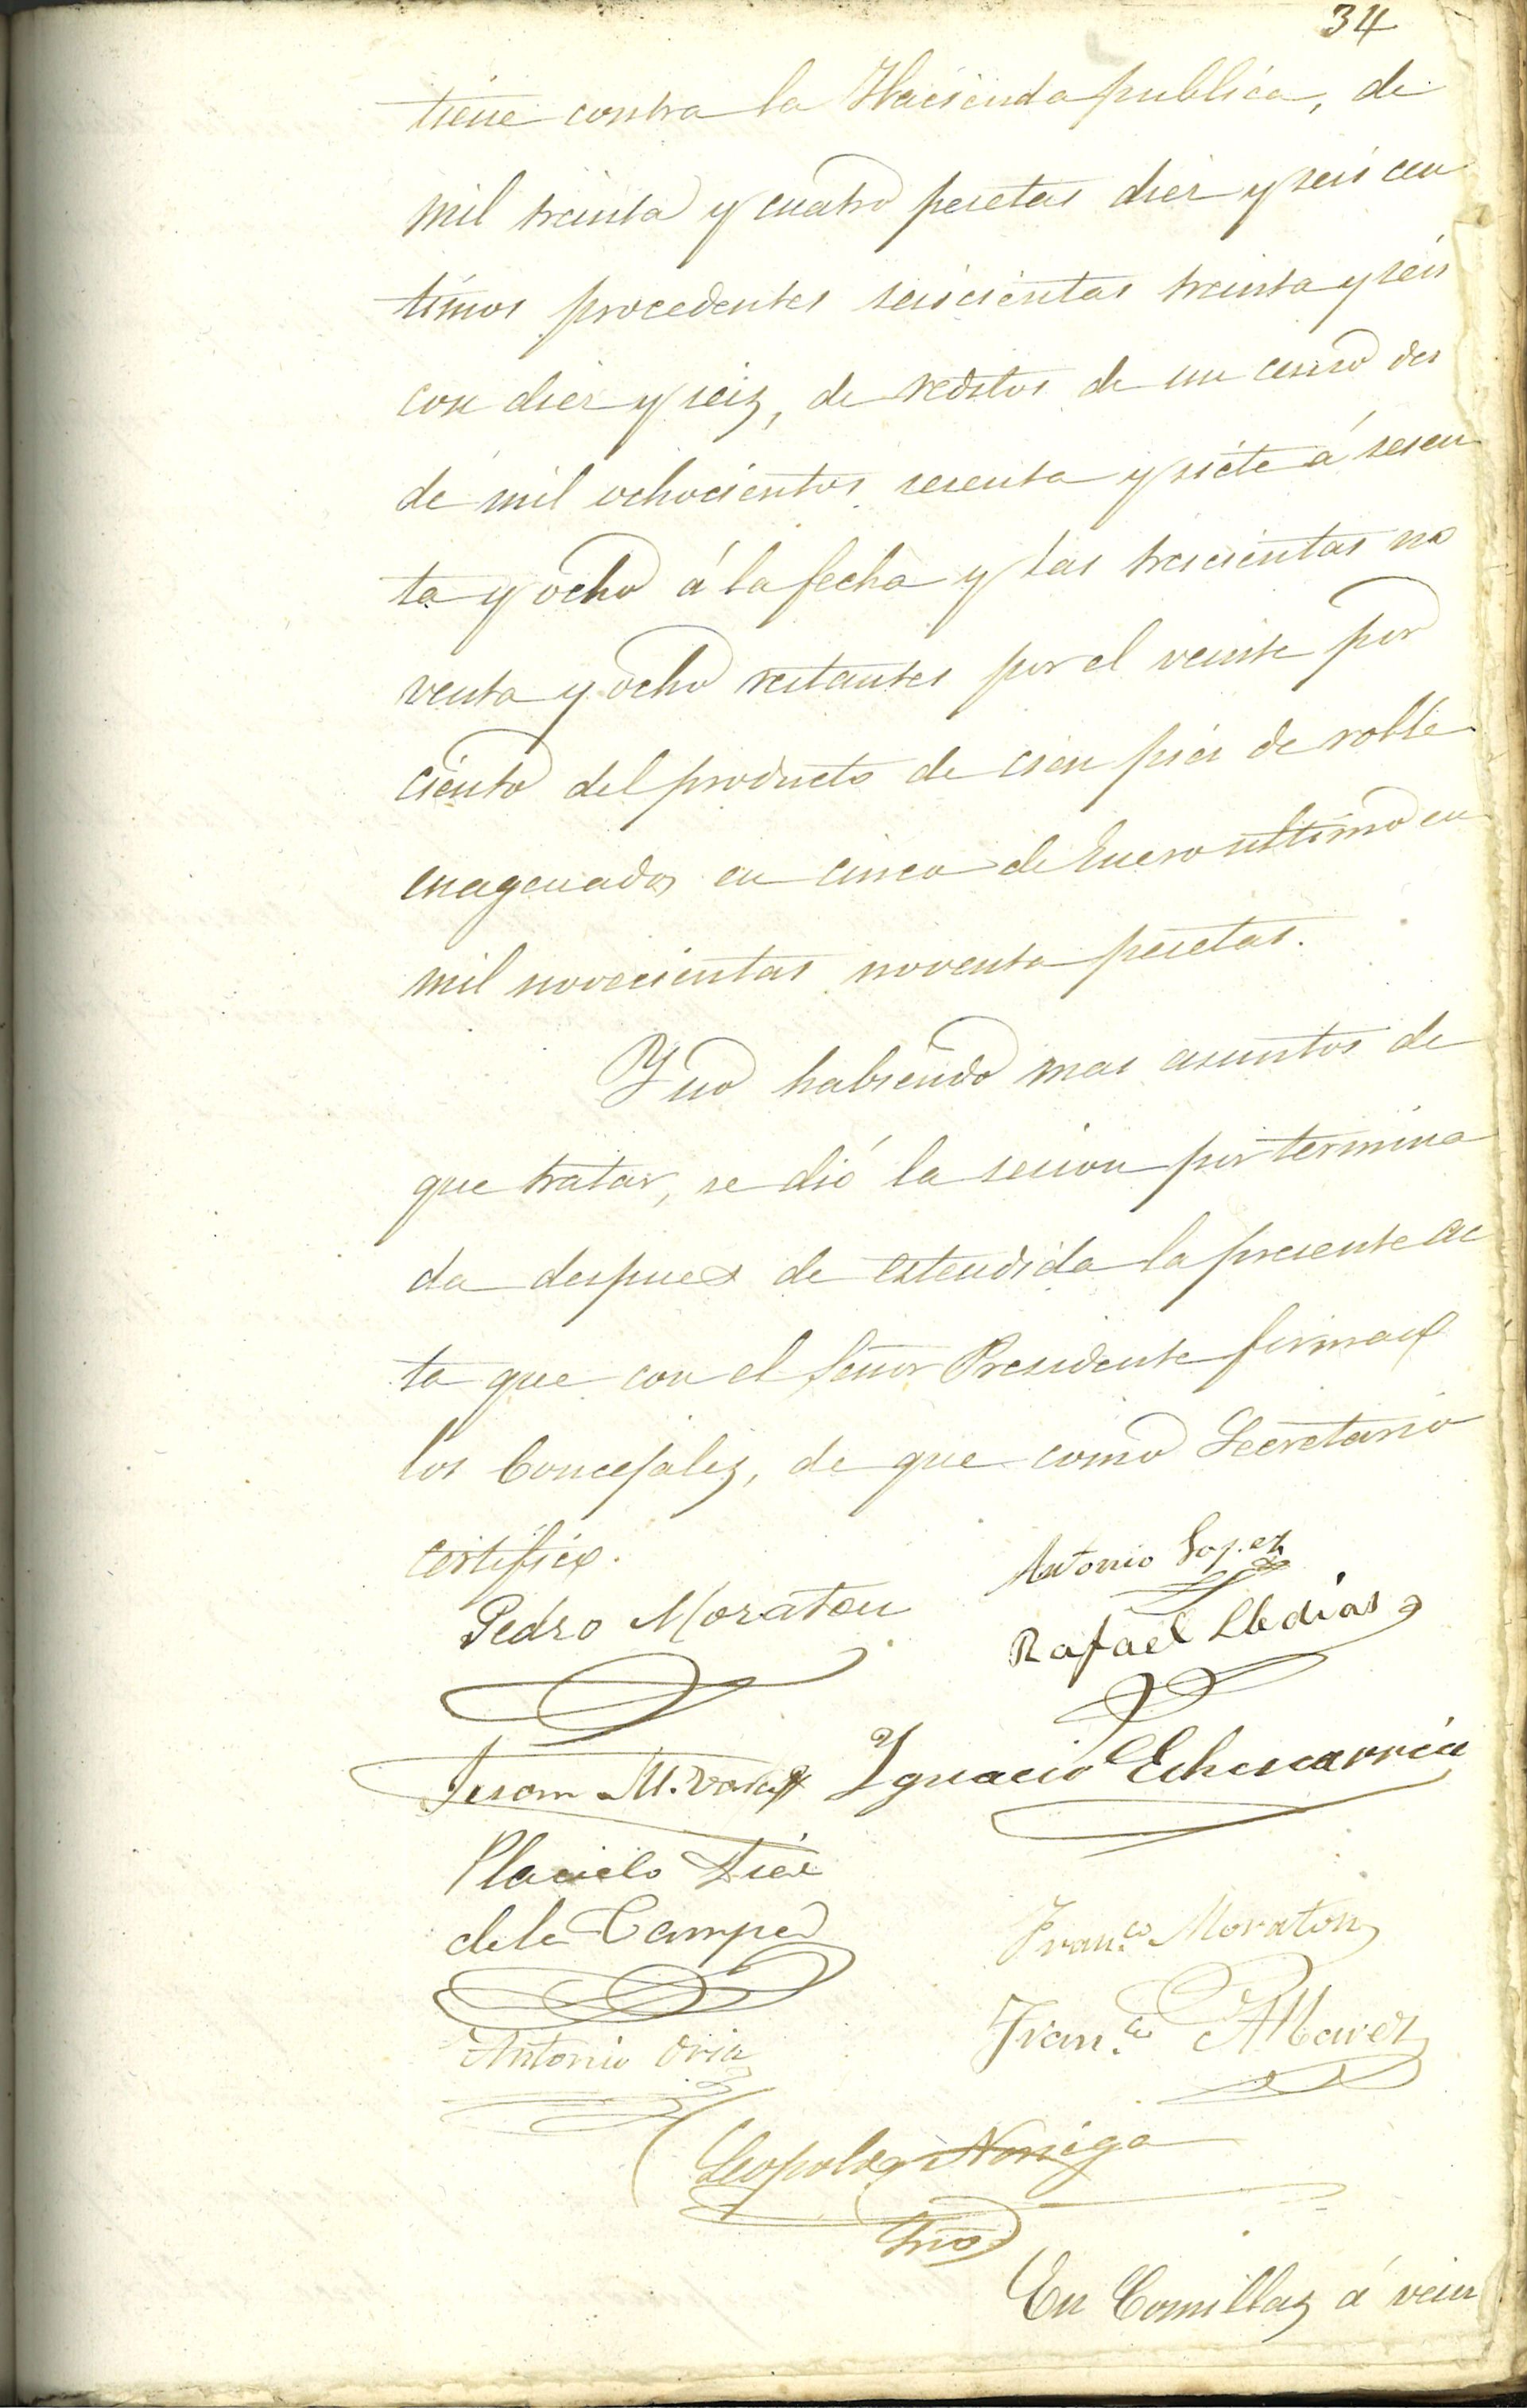 34
tiene contra la Hacienda publica, de
mil treinta y cuatro pesetas diez y seis cen
timos procedentes seiscientas treinta y seis
con diez y seis, de reditos de un censo des
de mil ochocientos sesenta y siete á sesen
ta y ocho á la fecha y las trescientas no
venta y ocho restantes por el veinte por
ciento del producto de cien pies de roble
enagenados en cinco de Enero ultimo en
mil novecientas noventa pesetas.
Y no habiendo mas asuntos de
que tratar, se dió la sesion por termina
da despues de estendida la presente ac
ta que con el Señor Presidente firman
los Concejales, de que como Secretario
certifico.
Antonio Lopez
Pedro Moraton
Rafael Lledias
M.
Ignacio Echevarria
Placido Diez
de la Campa
Franco Moraton
Antonio Oria
Franco Alvarez
Leopoldo Noriega
Srio
En Comillas á vein